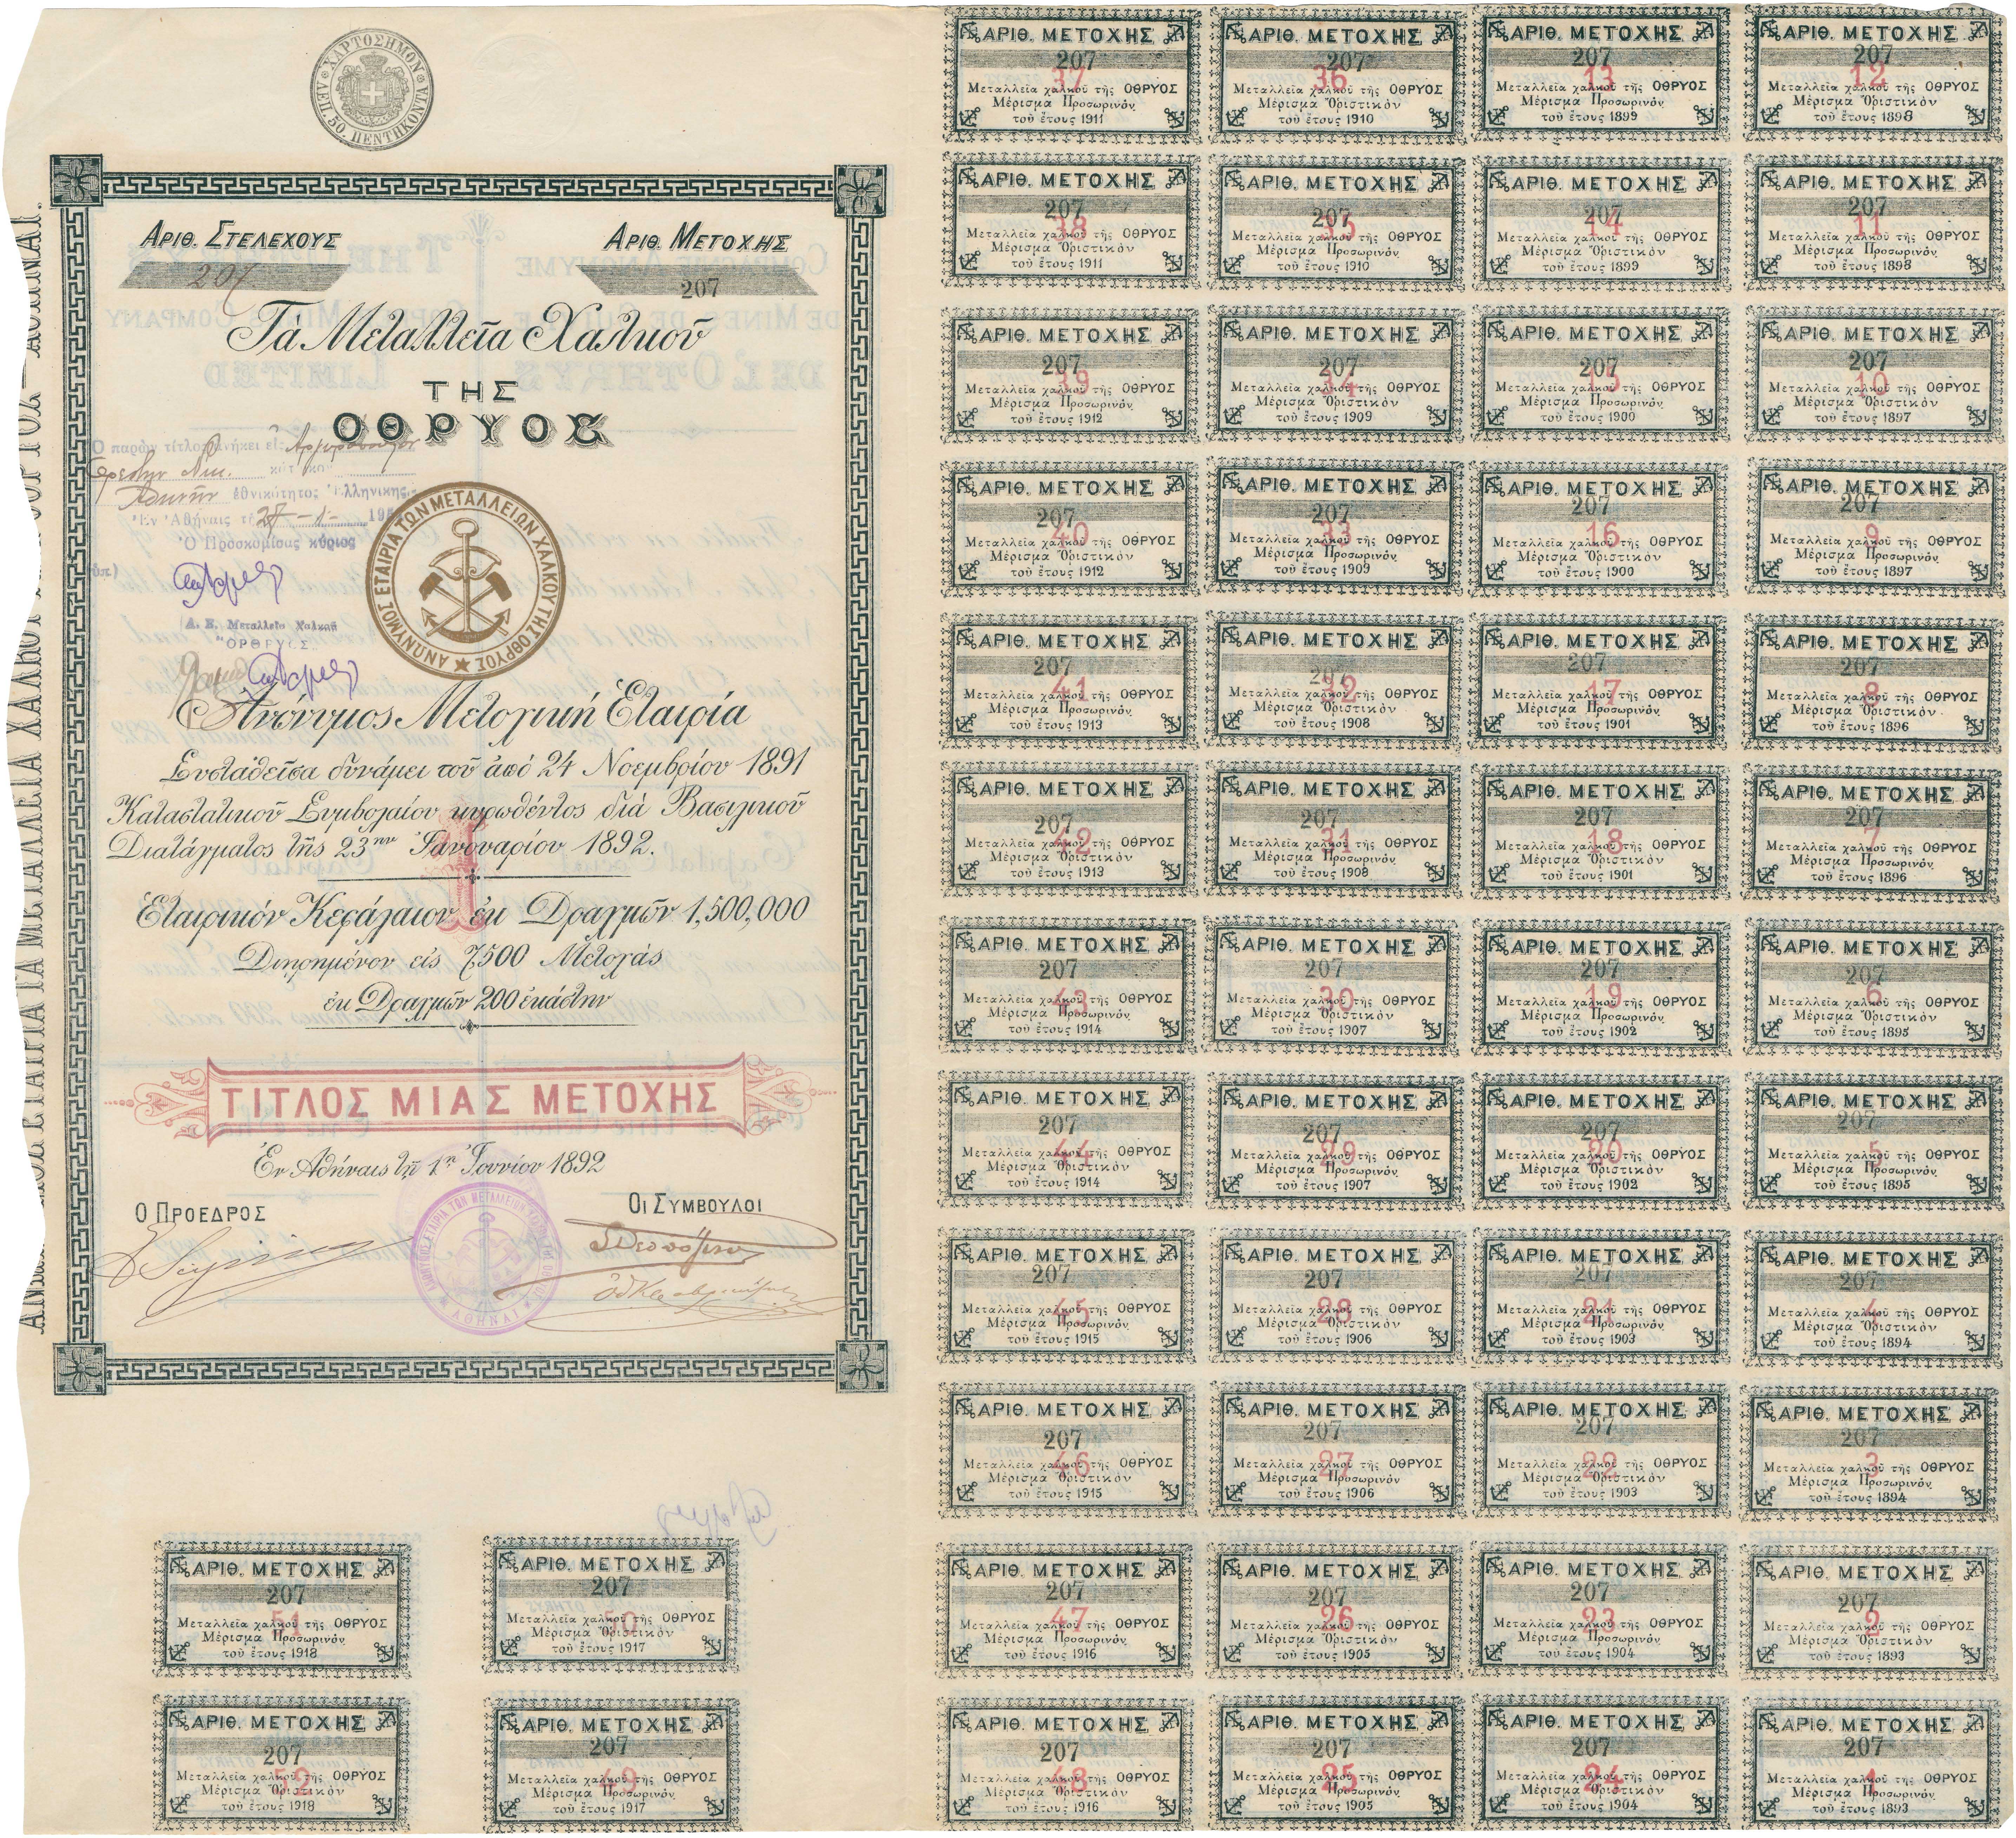 ΧΑΡΤΟΣΗΜΟΝ ΛΕΠ. 50 ΠΕΝΤΗΚΟΝΤΑ
ΑΡΙΘ. ΣΤΕΛΕΧΟΥΣ ΑΡΙΘ. ΜΕΤΟΧΗΣ
207 207
Τὰ Μεταλλεῖα Χαλκοῦ
ΤΗΣ
ΟΘΡΥΟΣ
Ὁ παρὼν τίτλος ἀνήκει εἰς
Νικ.
ἐθνικότητος Ἑλληνικῆς
Ἐν Ἀθήναις τῇ 27-1-19
Ὁ Προσκομίσας κύριος
Α. Ε. Μεταλλεῖα Χαλκοῦ
"ΟΡΘΡΥΟΣ
ΑΝΩΝΥΜΟΣ ΕΤΑΙΡΙΑ ΤΩΝ ΜΕΤΑΛΛΕΙΩΝ ΧΑΛΚΟΥ ΤΗΣ ΟΘΡΥΟΣ
Ἀνώνυμος Μετοχικὴ Ἑταιρία
Συσταθεῖσα δυνάμει τοῦ ἀπὸ 24 Νοεμβρίου 1891
Καταστατικοῦ Συμβολαίου κυρωθέντος διὰ Βασιλικοῦ
Διατάγματος τῆς 23ης Ἰανουαρίου 1892.
1
Ἑταιρικὸν Κεφάλαιον ἐκ Δραχμῶν 1,500,000
Διῃρημένον εἰς 7500 Μετοχὰς
ἐκ Δραχμῶν 200 ἑκάστην
ΤΙΤΛΟΣ ΜΙΑΣ ΜΕΤΟΧΗΣ
Ἐν Ἀθήναις τῇ 1ῃ Ἰουνίου 1892
Ο ΠΡΟΕΔΡΟΣ ΟΙ ΣΥΜΒΟΥΛΟΙ
ΑΝΩΝΥΜΟΣ ΕΤΑΙΡΙΑ ΤΩΝ ΜΕΤΑΛΛΕΙΩΝ ΧΑΛΚΟΥ ΤΗΣ ΟΘΡΥΟΣ ΑΘΗΝΑΙ
ΕΤΑΙΡΙΑ ΤΑ ΜΕΤΑΛΛΕΙΑ ΧΑΛΚΟΥ
ΑΡΙΘ. ΜΕΤΟΧΗΣ ΑΡΙΘ. ΜΕΤΟΧΗΣ
207 207
51 50
Μεταλλεῖα χαλκοῦ τῆς ΟΘΡΥΟΣ Μεταλλεῖα χαλκοῦ τῆς ΟΘΡΥΟΣ
Μέρισμα Προσωρινόν Μέρισμα Ὁριστικόν
τοῦ ἔτους 1918 τοῦ ἔτους 1917
ΑΡΙΘ. ΜΕΤΟΧΗΣ ΑΡΙΘ. ΜΕΤΟΧΗΣ
207 207
52 49
Μεταλλεῖα χαλκοῦ τῆς ΟΘΡΥΟΣ Μεταλλεῖα χαλκοῦ τῆς ΟΘΡΥΟΣ
Μέρισμα Ὁριστικόν Μέρισμα Προσωρινόν
τοῦ ἔτους 1918 τοῦ ἔτους 1917
ΑΡΙΘ. ΜΕΤΟΧΗΣ ΑΡΙΘ. ΜΕΤΟΧΗΣ ΑΡΙΘ. ΜΕΤΟΧΗΣ ΑΡΙΘ. ΜΕΤΟΧΗΣ
207 207 207 207
37 36 13 12
Μεταλλεῖα χαλκοῦ τῆς ΟΘΡΥΟΣ Μεταλλεῖα χαλκοῦ τῆς ΟΘΡΥΟΣ Μεταλλεῖα χαλκοῦ τῆς ΟΘΡΥΟΣ Μεταλλεῖα χαλκοῦ τῆς ΟΘΡΥΟΣ
Μέρισμα Προσωρινόν Μέρισμα Ὁριστικόν Μέρισμα Προσωρινόν Μέρισμα Ὁριστικόν
τοῦ ἔτους 1911 τοῦ ἔτους 1910 τοῦ ἔτους 1899 τοῦ ἔτους 1898
ΑΡΙΘ. ΜΕΤΟΧΗΣ ΑΡΙΘ. ΜΕΤΟΧΗΣ ΑΡΙΘ. ΜΕΤΟΧΗΣ ΑΡΙΘ. ΜΕΤΟΧΗΣ
207 207 207 207
38 35 14 11
Μεταλλεῖα χαλκοῦ τῆς ΟΘΡΥΟΣ Μεταλλεῖα χαλκοῦ τῆς ΟΘΡΥΟΣ Μεταλλεῖα χαλκοῦ τῆς ΟΘΡΥΟΣ Μεταλλεῖα χαλκοῦ τῆς ΟΘΡΥΟΣ
Μέρισμα Ὁριστικόν Μέρισμα Προσωρινόν Μέρισμα Ὁριστικόν Μέρισμα Προσωρινόν
τοῦ ἔτους 1911 τοῦ ἔτους 1910 τοῦ ἔτους 1899 τοῦ ἔτους 1898
ΑΡΙΘ. ΜΕΤΟΧΗΣ ΑΡΙΘ. ΜΕΤΟΧΗΣ ΑΡΙΘ. ΜΕΤΟΧΗΣ ΑΡΙΘ. ΜΕΤΟΧΗΣ
207 207 207 207
39 34 15 10
Μεταλλεῖα χαλκοῦ τῆς ΟΘΡΥΟΣ Μεταλλεῖα χαλκοῦ τῆς ΟΘΡΥΟΣ Μεταλλεῖα χαλκοῦ τῆς ΟΘΡΥΟΣ Μεταλλεῖα χαλκοῦ τῆς ΟΘΡΥΟΣ
Μέρισμα Προσωρινόν Μέρισμα Ὁριστικόν Μέρισμα Προσωρινόν Μέρισμα Ὁριστικόν
τοῦ ἔτους 1912 τοῦ ἔτους 1909 τοῦ ἔτους 1900 τοῦ ἔτους 1897
ΑΡΙΘ. ΜΕΤΟΧΗΣ ΑΡΙΘ. ΜΕΤΟΧΗΣ ΑΡΙΘ. ΜΕΤΟΧΗΣ ΑΡΙΘ. ΜΕΤΟΧΗΣ
207 207 207 207
40 33 16 9
Μεταλλεῖα χαλκοῦ τῆς ΟΘΡΥΟΣ Μεταλλεῖα χαλκοῦ τῆς ΟΘΡΥΟΣ Μεταλλεῖα χαλκοῦ τῆς ΟΘΡΥΟΣ Μεταλλεῖα χαλκοῦ τῆς ΟΘΡΥΟΣ
Μέρισμα Ὁριστικόν Μέρισμα Προσωρινόν Μέρισμα Ὁριστικόν Μέρισμα Προσωρινόν
τοῦ ἔτους 1912 τοῦ ἔτους 1909 τοῦ ἔτους 1900 τοῦ ἔτους 1897
ΑΡΙΘ. ΜΕΤΟΧΗΣ ΑΡΙΘ. ΜΕΤΟΧΗΣ ΑΡΙΘ. ΜΕΤΟΧΗΣ ΑΡΙΘ. ΜΕΤΟΧΗΣ
207 207 207 207
41 32 17 8
Μεταλλεῖα χαλκοῦ τῆς ΟΘΡΥΟΣ Μεταλλεῖα χαλκοῦ τῆς ΟΘΡΥΟΣ Μεταλλεῖα χαλκοῦ τῆς ΟΘΡΥΟΣ Μεταλλεῖα χαλκοῦ τῆς ΟΘΡΥΟΣ
Μέρισμα Προσωρινόν Μέρισμα Ὁριστικόν Μέρισμα Προσωρινόν Μέρισμα Ὁριστικόν
τοῦ ἔτους 1913 τοῦ ἔτους 1908 τοῦ ἔτους 1901 τοῦ ἔτους 1896
ΑΡΙΘ. ΜΕΤΟΧΗΣ ΑΡΙΘ. ΜΕΤΟΧΗΣ ΑΡΙΘ. ΜΕΤΟΧΗΣ ΑΡΙΘ. ΜΕΤΟΧΗΣ
207 207 207 207
42 31 18 7
Μεταλλεῖα χαλκοῦ τῆς ΟΘΡΥΟΣ Μεταλλεῖα χαλκοῦ τῆς ΟΘΡΥΟΣ Μεταλλεῖα χαλκοῦ τῆς ΟΘΡΥΟΣ Μεταλλεῖα χαλκοῦ τῆς ΟΘΡΥΟΣ
Μέρισμα Ὁριστικόν Μέρισμα Προσωρινόν Μέρισμα Ὁριστικόν Μέρισμα Προσωρινόν
τοῦ ἔτους 1913 τοῦ ἔτους 1908 τοῦ ἔτους 1901 τοῦ ἔτους 1896
ΑΡΙΘ. ΜΕΤΟΧΗΣ ΑΡΙΘ. ΜΕΤΟΧΗΣ ΑΡΙΘ. ΜΕΤΟΧΗΣ ΑΡΙΘ. ΜΕΤΟΧΗΣ
207 207 207 207
43 30 19 6
Μεταλλεῖα χαλκοῦ τῆς ΟΘΡΥΟΣ Μεταλλεῖα χαλκοῦ τῆς ΟΘΡΥΟΣ Μεταλλεῖα χαλκοῦ τῆς ΟΘΡΥΟΣ Μεταλλεῖα χαλκοῦ τῆς ΟΘΡΥΟΣ
Μέρισμα Προσωρινόν Μέρισμα Ὁριστικόν Μέρισμα Προσωρινόν Μέρισμα Ὁριστικόν
τοῦ ἔτους 1914 τοῦ ἔτους 1907 τοῦ ἔτους 1902 τοῦ ἔτους 1895
ΑΡΙΘ. ΜΕΤΟΧΗΣ ΑΡΙΘ. ΜΕΤΟΧΗΣ ΑΡΙΘ. ΜΕΤΟΧΗΣ ΑΡΙΘ. ΜΕΤΟΧΗΣ
207 207 207 207
44 29 20 5
Μεταλλεῖα χαλκοῦ τῆς ΟΘΡΥΟΣ Μεταλλεῖα χαλκοῦ τῆς ΟΘΡΥΟΣ Μεταλλεῖα χαλκοῦ τῆς ΟΘΡΥΟΣ Μεταλλεῖα χαλκοῦ τῆς ΟΘΡΥΟΣ
Μέρισμα Ὁριστικόν Μέρισμα Προσωρινόν Μέρισμα Ὁριστικόν Μέρισμα Προσωρινόν
τοῦ ἔτους 1914 τοῦ ἔτους 1907 τοῦ ἔτους 1902 τοῦ ἔτους 1895
ΑΡΙΘ. ΜΕΤΟΧΗΣ ΑΡΙΘ. ΜΕΤΟΧΗΣ ΑΡΙΘ. ΜΕΤΟΧΗΣ ΑΡΙΘ. ΜΕΤΟΧΗΣ
207 207 207 207
45 28 21 4
Μεταλλεῖα χαλκοῦ τῆς ΟΘΡΥΟΣ Μεταλλεῖα χαλκοῦ τῆς ΟΘΡΥΟΣ Μεταλλεῖα χαλκοῦ τῆς ΟΘΡΥΟΣ Μεταλλεῖα χαλκοῦ τῆς ΟΘΡΥΟΣ
Μέρισμα Προσωρινόν Μέρισμα Ὁριστικόν Μέρισμα Προσωρινόν Μέρισμα Ὁριστικόν
τοῦ ἔτους 1915 τοῦ ἔτους 1906 τοῦ ἔτους 1903 τοῦ ἔτους 1894
ΑΡΙΘ. ΜΕΤΟΧΗΣ ΑΡΙΘ. ΜΕΤΟΧΗΣ ΑΡΙΘ. ΜΕΤΟΧΗΣ ΑΡΙΘ. ΜΕΤΟΧΗΣ
207 207 207 207
46 27 22 3
Μεταλλεῖα χαλκοῦ τῆς ΟΘΡΥΟΣ Μεταλλεῖα χαλκοῦ τῆς ΟΘΡΥΟΣ Μεταλλεῖα χαλκοῦ τῆς ΟΘΡΥΟΣ Μεταλλεῖα χαλκοῦ τῆς ΟΘΡΥΟΣ
Μέρισμα Ὁριστικόν Μέρισμα Προσωρινόν Μέρισμα Ὁριστικόν Μέρισμα Προσωρινόν
τοῦ ἔτους 1915 τοῦ ἔτους 1906 τοῦ ἔτους 1903 τοῦ ἔτους 1894
ΑΡΙΘ. ΜΕΤΟΧΗΣ ΑΡΙΘ. ΜΕΤΟΧΗΣ ΑΡΙΘ. ΜΕΤΟΧΗΣ ΑΡΙΘ. ΜΕΤΟΧΗΣ
207 207 207 207
47 26 23 2
Μεταλλεῖα χαλκοῦ τῆς ΟΘΡΥΟΣ Μεταλλεῖα χαλκοῦ τῆς ΟΘΡΥΟΣ Μεταλλεῖα χαλκοῦ τῆς ΟΘΡΥΟΣ Μεταλλεῖα χαλκοῦ τῆς ΟΘΡΥΟΣ
Μέρισμα Προσωρινόν Μέρισμα Ὁριστικόν Μέρισμα Προσωρινόν Μέρισμα Ὁριστικόν
τοῦ ἔτους 1916 τοῦ ἔτους 1905 τοῦ ἔτους 1904 τοῦ ἔτους 1893
ΑΡΙΘ. ΜΕΤΟΧΗΣ ΑΡΙΘ. ΜΕΤΟΧΗΣ ΑΡΙΘ. ΜΕΤΟΧΗΣ ΑΡΙΘ. ΜΕΤΟΧΗΣ
207 207 207 207
48 25 24 1
Μεταλλεῖα χαλκοῦ τῆς ΟΘΡΥΟΣ Μεταλλεῖα χαλκοῦ τῆς ΟΘΡΥΟΣ Μεταλλεῖα χαλκοῦ τῆς ΟΘΡΥΟΣ Μεταλλεῖα χαλκοῦ τῆς ΟΘΡΥΟΣ
Μέρισμα Ὁριστικόν Μέρισμα Προσωρινόν Μέρισμα Ὁριστικόν Μέρισμα Προσωρινόν
τοῦ ἔτους 1916 τοῦ ἔτους 1905 τοῦ ἔτους 1904 τοῦ ἔτους 1893